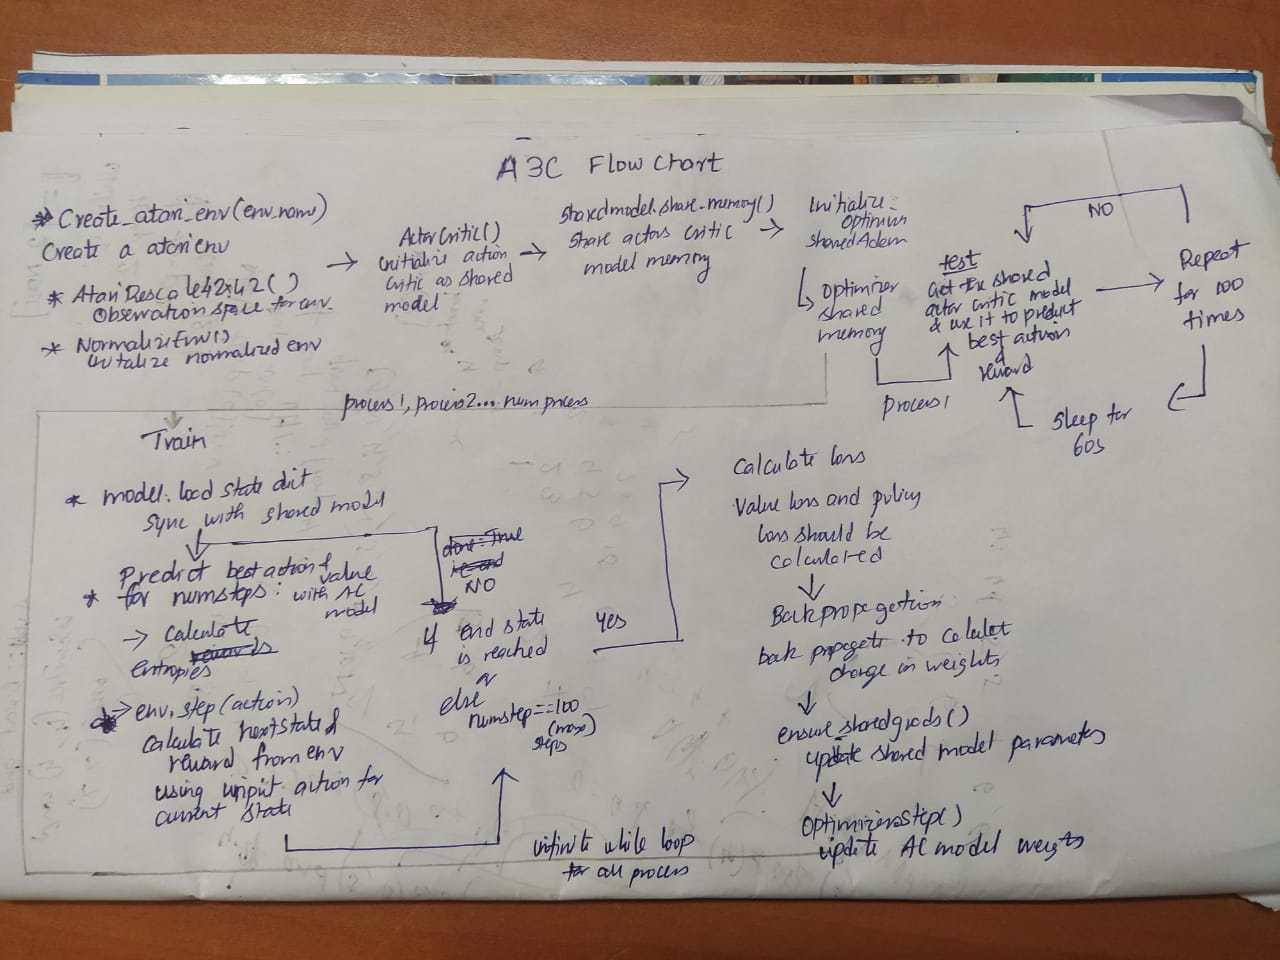 A3C Flow Chart
* Create_atari_env(env_name)
Create a atari env
* AtariRescale42x42()
Observation space for env.
* NormalizeEnv()
initalize normalized env
ActorCritic()
initialize action
critic as shared
model
Shared model.share_memory()
Share actors critic
model memory
Initialize:
Optimum
sharedAdam
Optimizer
shared
memory
Process1
test
get the shared
actor critic model
& use it to predict
best action
&
reward
NO
Repeat
for 100
times
Sleep for
60s
process1, process2... num process
Train
* model.load state dict
Sync with shared model
Predict best action &
value
* for numsteps: with AC
model
→ Calculate
entropies
→ env.step(action)
Calculate next state &
reward from env
using input action for
current state
done = True
NO
If end state
is reached
or
else
numstep==100
(max)
steps
Yes
infinite while loop
for all process
Calculate loss
Value loss and policy
loss should be
calculated
Backpropagation
back propagate to calculate
change in weights
ensure_sharedgrads()
update shared model parameters
OptimizerStep()
update AC model weights